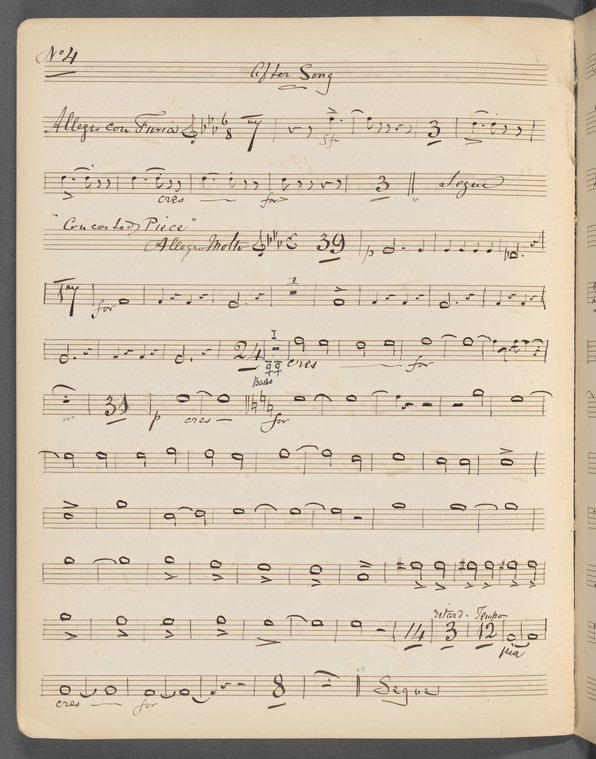 No 4
After Song
Allegro con Furia 6 8 7 3
sfz
3 Segue
cres for
"Concerted Piece"
Allegro Molto C 39
p
for 1
24 1
cres for
Basso
31
p cres for
retard. Tempo
14 3 12
pia
8 Segue
cres for